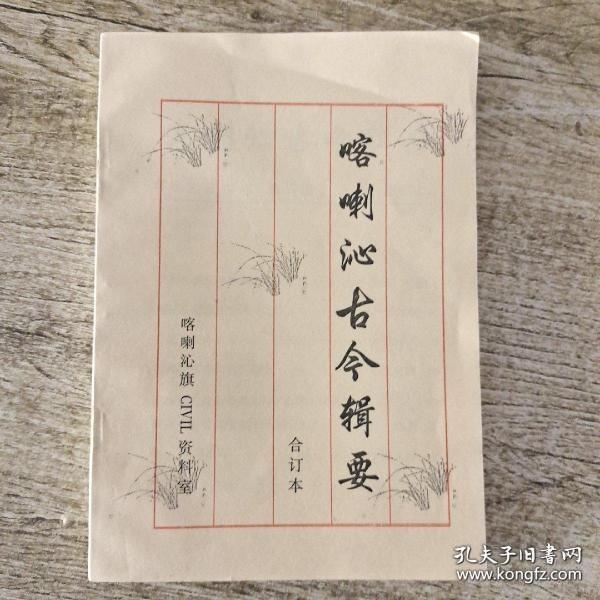 喀喇沁古今辑要
合订本
喀喇沁旗 CIVIL 资料室
孔夫子旧书网
www.kongfz.com